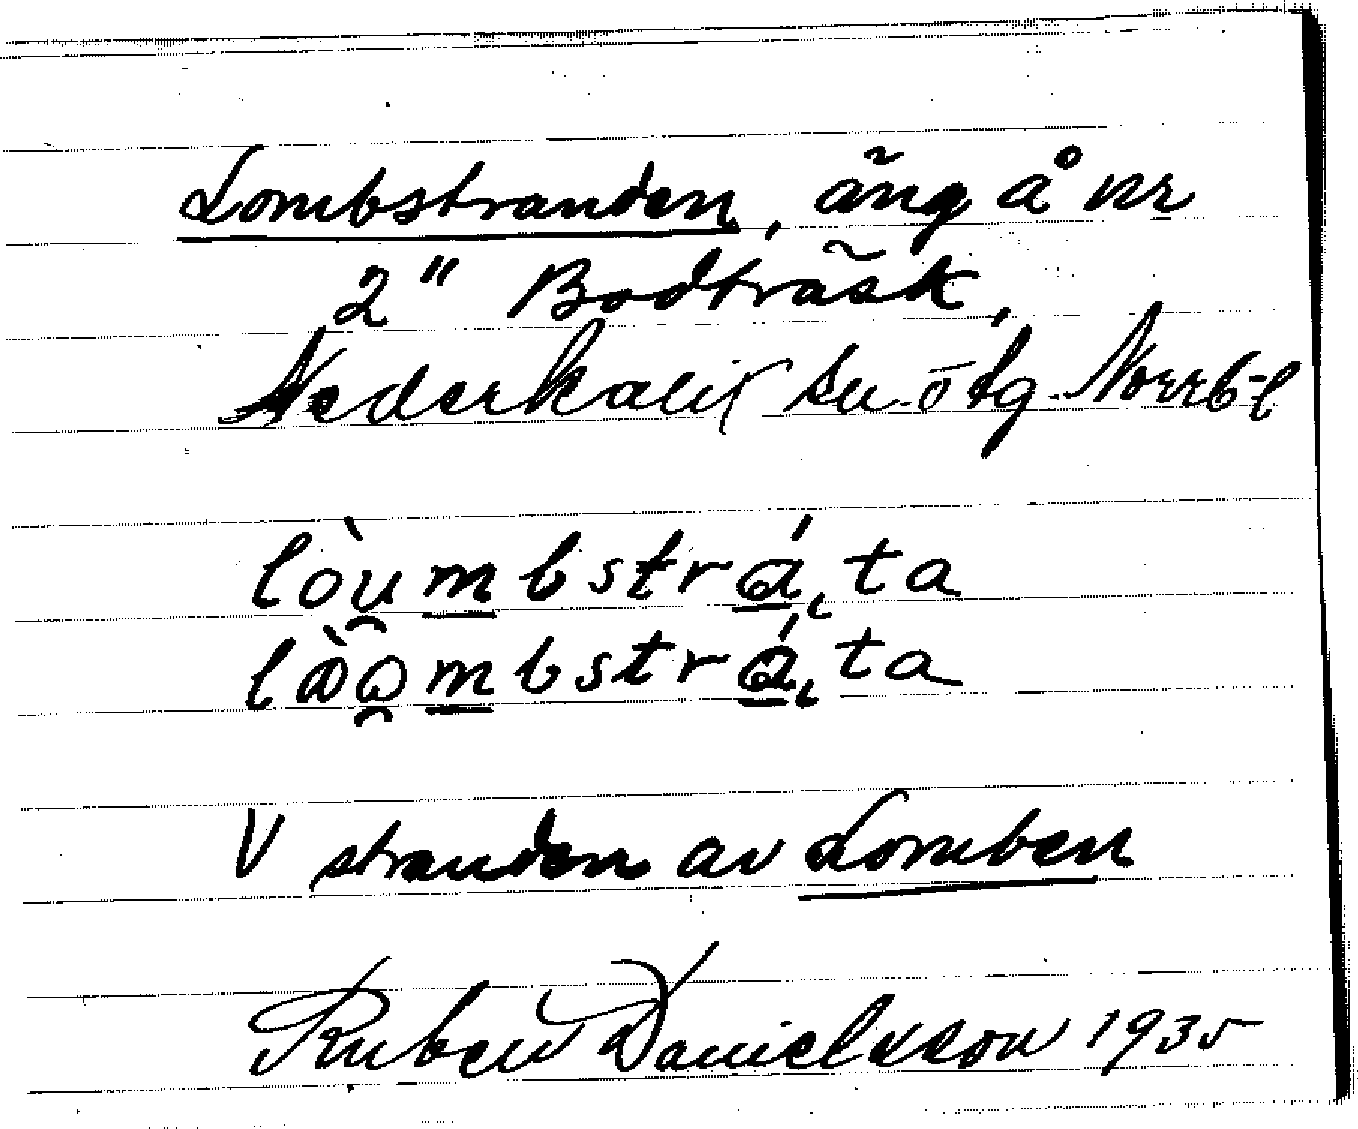 Lombstranden, äng å nr
2" Bodträsk,
Nederkalix sn ö tg Norrb-l
lòu̯m̲bstrά̲ɩta
làɷ̯m̲bstrά̲ɩta
V stranden av Lomben
Ruben Danielsson 1935